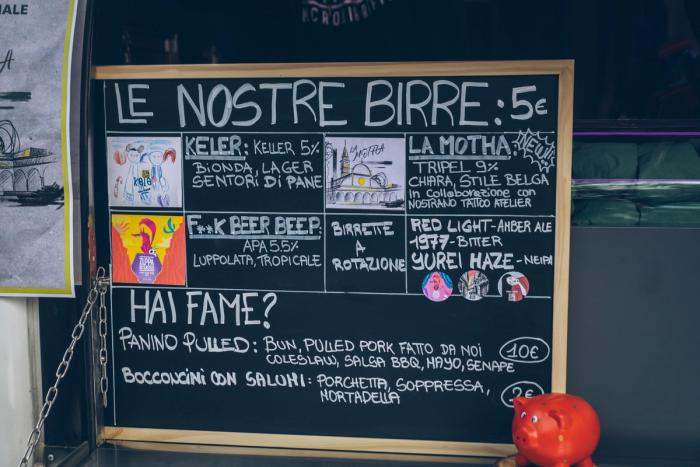 LE NOSTRE BIRRE: 5€
KELER: KELLER 5%
BIONDA, LAGER
SENTORI DI PANE
LA MOTTA
LA MOTHA: NEW!
TRIPEL 9%
CHIARA, STILE BELGA
IN COLLABORAZIONE CON
NOSTRANO TATTOO ATELIER
F**K BEER BEEP:
APA 5.5%
LUPPOLATA, TROPICALE
BIRRETTE
A
ROTAZIONE
RED LIGHT-AMBER ALE
1977-BITTER
YUREI HAZE-NEIPA
HAI FAME?
PANINO PULLED: BUN, PULLED PORK FATTO DA NOI
COLESLAW, SALSA BBQ, MAYO, SENAPE
10€
BOCCONCINI CON SALUMI: PORCHETTA, SOPPRESSA,
MORTADELLA